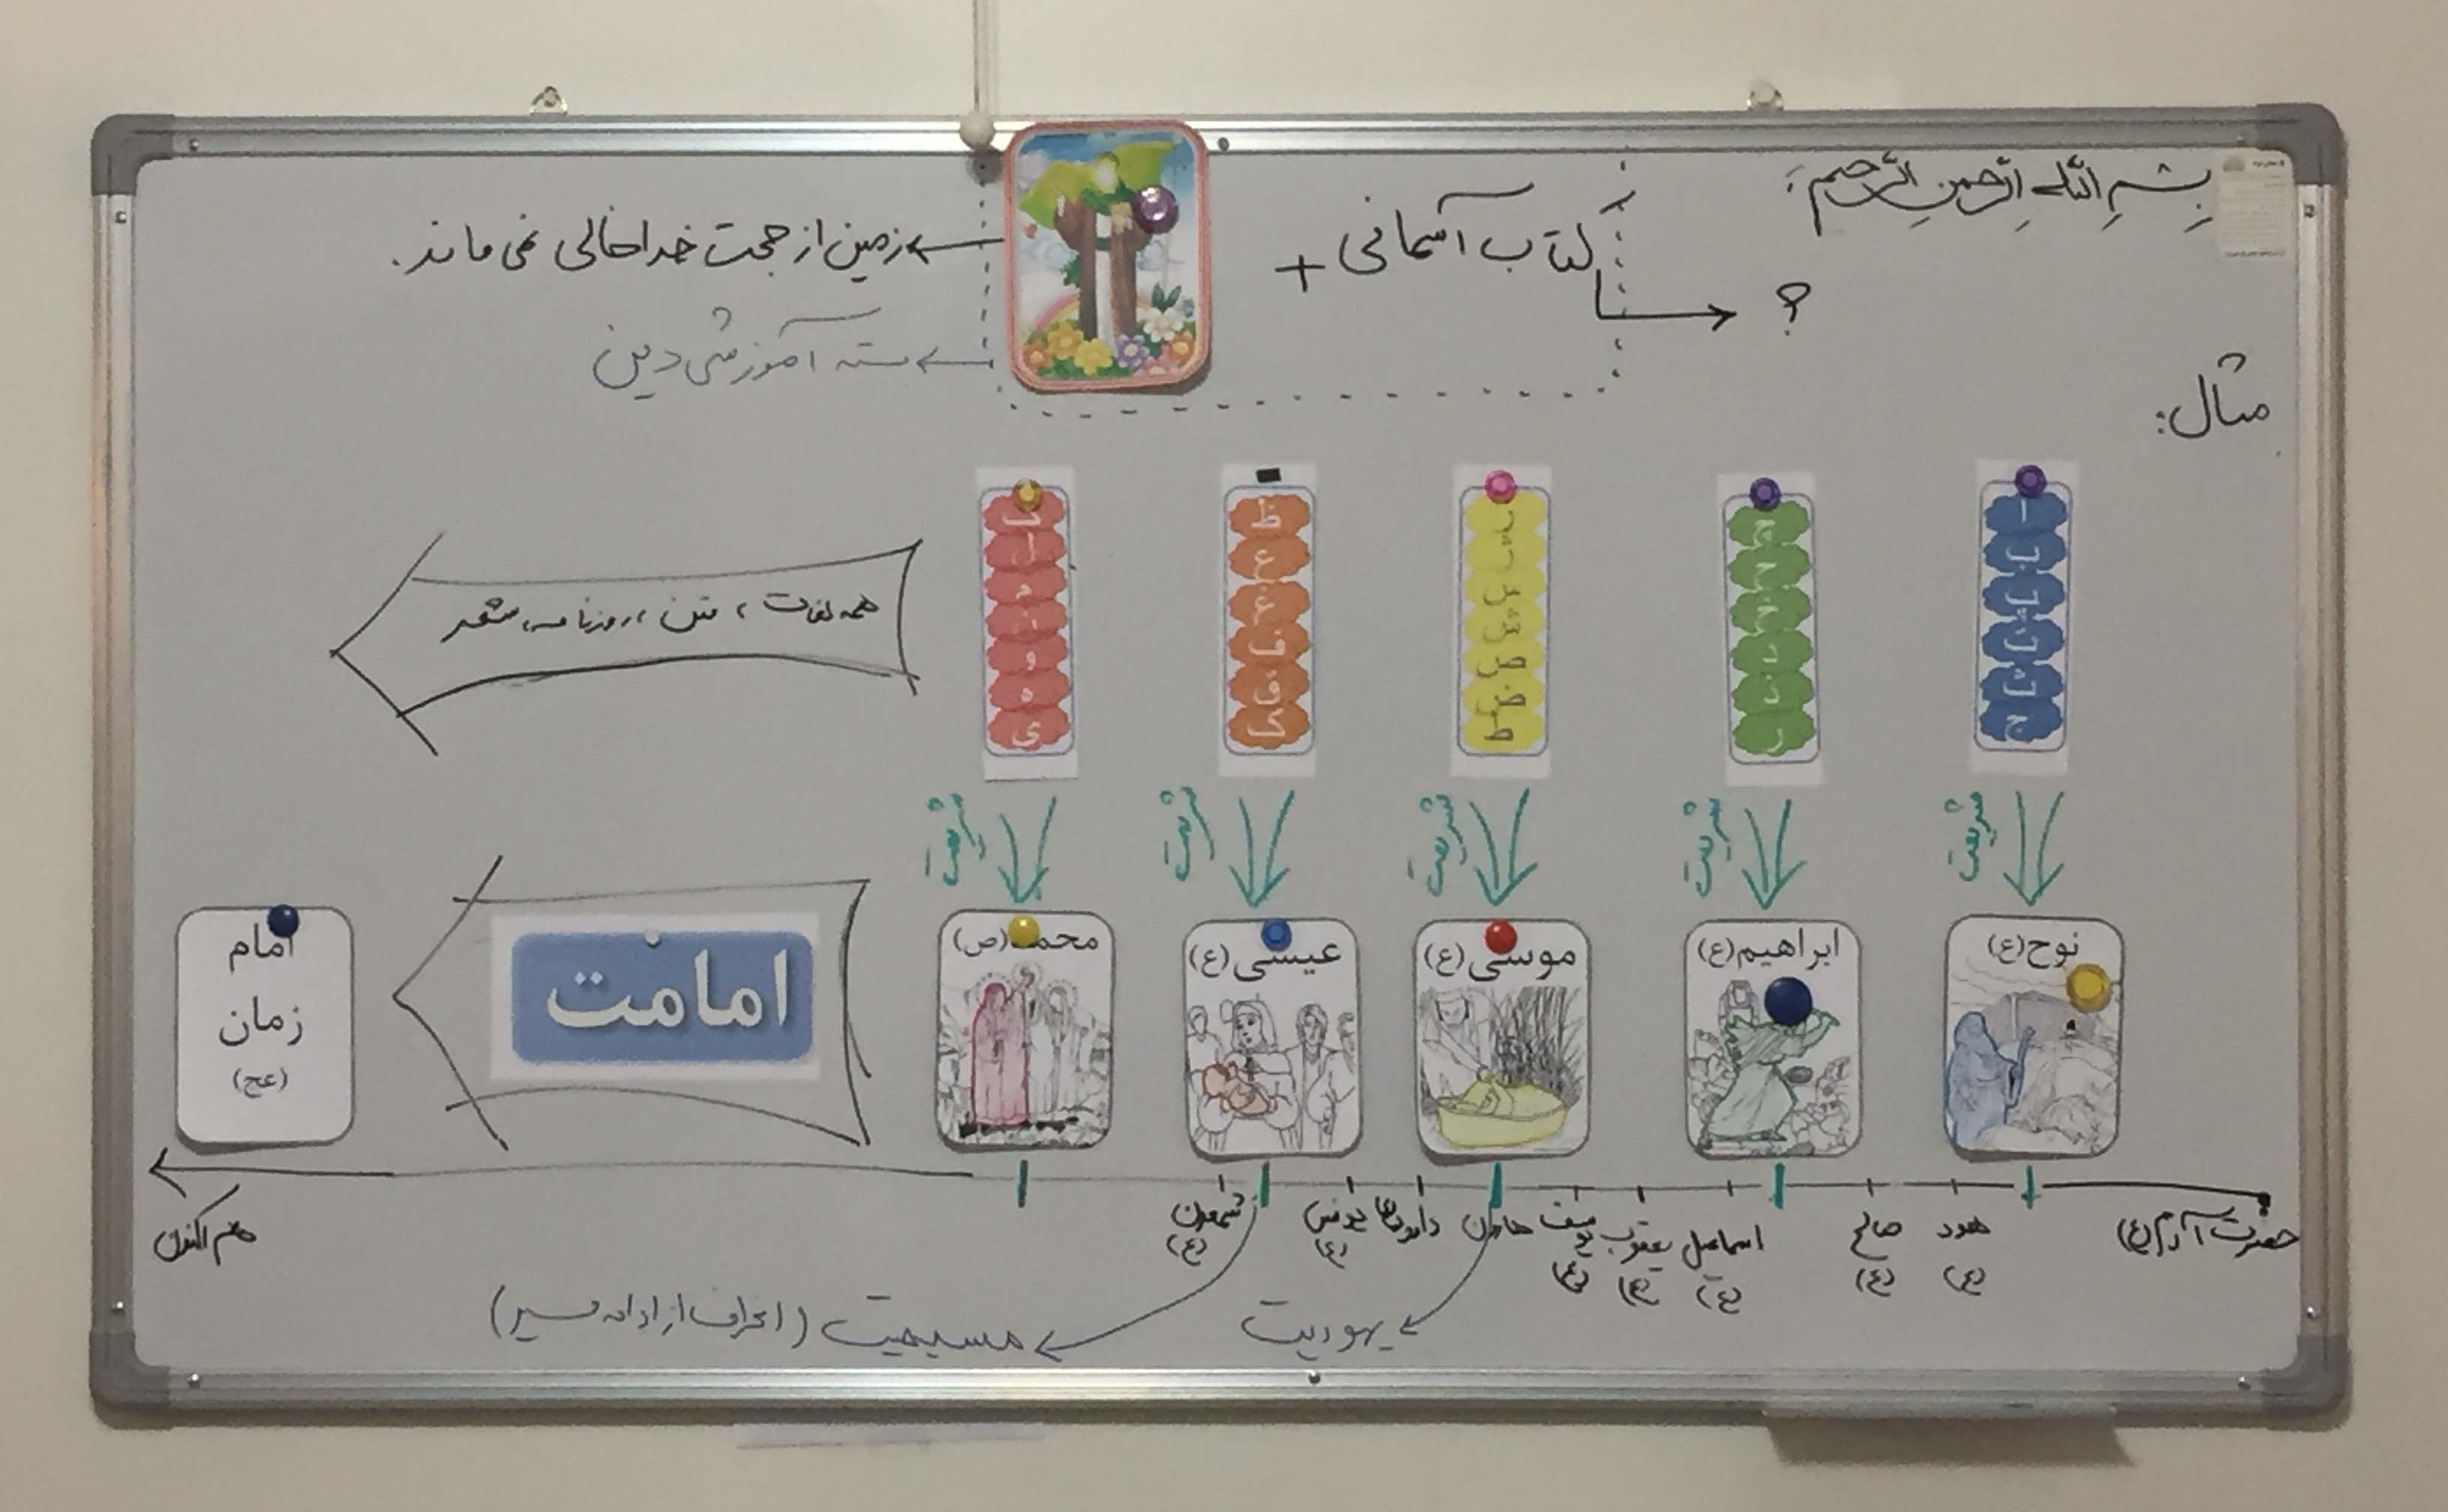 بِسْمِ اللهِ الرَّحمنِ الرَّحیم
کتاب آسمانی +
؟
زمین از حجت خدا خالی نمی ماند.
بسته آموزشی دین
مثال:
همه لغات، متن، روزنامه، شعر
شریعت
شریعت
شریعت
شریعت
شریعت
نوح (ع)
ابراهیم (ع)
موسی (ع)
عیسی (ع)
محمد (ص)
امامت
امام
زمان
(عج)
حضرت آدم (ع)
هود (ع)
صالح (ع)
اسماعیل (ع)
یعقوب (ع)
یوسف (ع)
هارون
داوود
یونس (ع)
شمعون (ع)
هم اکنون
یهودیت
مسیحیت (انحراف از ادامه مسیر)